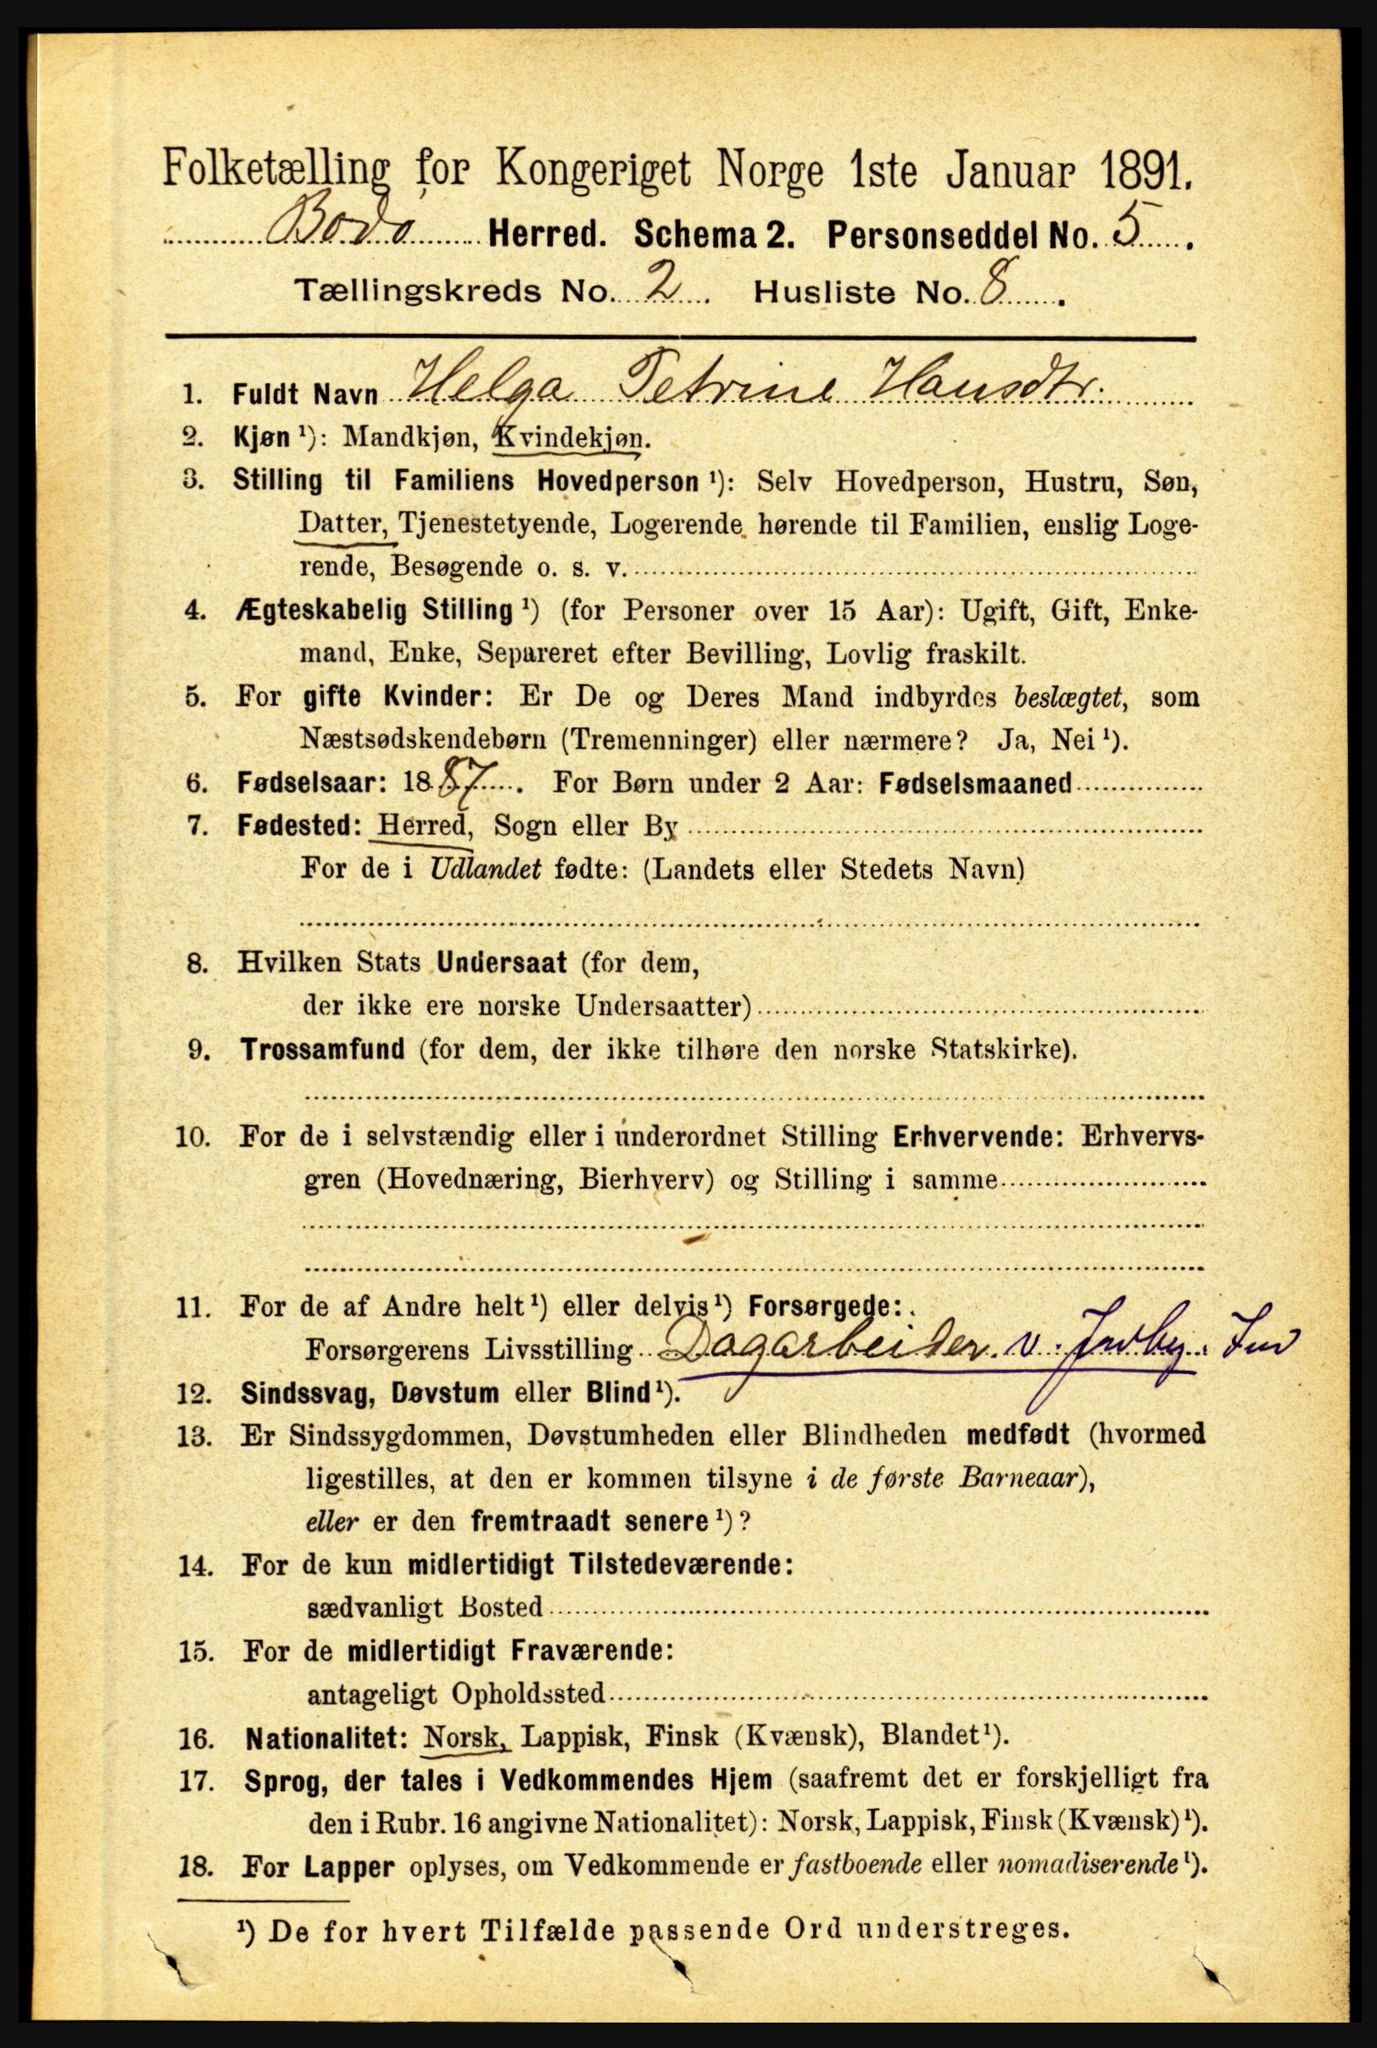 Folketælling for Kongeriget Norge 1ste Januar 1891.
Bodø Herred. Schema 2. Personseddel No. 5.
Tællingskreds No. 2. Husliste No. 8.
1. Fuldt Navn Helga Petrine Hansdtr.
2. Kjøn ¹): Mandkjøn, Kvindekjøn.
3. Stilling til Familiens Hovedperson ¹): Selv Hovedperson, Hustru, Søn,
Datter, Tjenestetyende, Logerende hørende til Familien, enslig Loge-
rende, Besøgende o. s. v.
4. Ægteskabelig Stilling ¹) (for Personer over 15 Aar): Ugift, Gift, Enke-
mand, Enke, Separeret efter Bevilling, Lovlig fraskilt.
5. For gifte Kvinder: Er De og Deres Mand indbyrdes beslægtet, som
Næstsødskendebørn (Tremenninger) eller nærmere? Ja, Nei ¹).
6. Fødselsaar: 1887. For Børn under 2 Aar: Fødselsmaaned
7. Fødested: Herred, Sogn eller By
For de i Udlandet fødte: (Landets eller Stedets Navn)
8. Hvilken Stats Undersaat (for dem,
der ikke ere norske Undersaatter)
9. Trossamfund (for dem, der ikke tilhøre den norske Statskirke).
10. For de i selvstændig eller i underordnet Stilling Erhvervende: Erhvervs-
gren (Hovednæring, Bierhverv) og Stilling i samme
11. For de af Andre helt ¹) eller delvis ¹) Forsørgede:
Forsørgerens Livsstilling Dagarbeider v.
12. Sindssvag, Døvstum eller Blind ¹).
13. Er Sindssygdommen, Døvstumheden eller Blindheden medfødt (hvormed
ligestilles, at den er kommen tilsyne i de første Barneaar),
eller er den fremtraadt senere ¹)?
14. For de kun midlertidigt Tilstedeværende:
sædvanligt Bosted
15. For de midlertidigt Fraværende:
antageligt Opholdssted
16. Nationalitet: Norsk, Lappisk, Finsk (Kvænsk), Blandet ¹).
17. Sprog, der tales i Vedkommendes Hjem (saafremt det er forskjelligt fra
den i Rubr. 16 angivne Nationalitet): Norsk, Lappisk, Finsk (Kvænsk) ¹).
18. For Lapper oplyses, om Vedkommende er fastboende eller nomadiserende ¹).
¹) De for hvert Tilfælde passende Ord understreges.